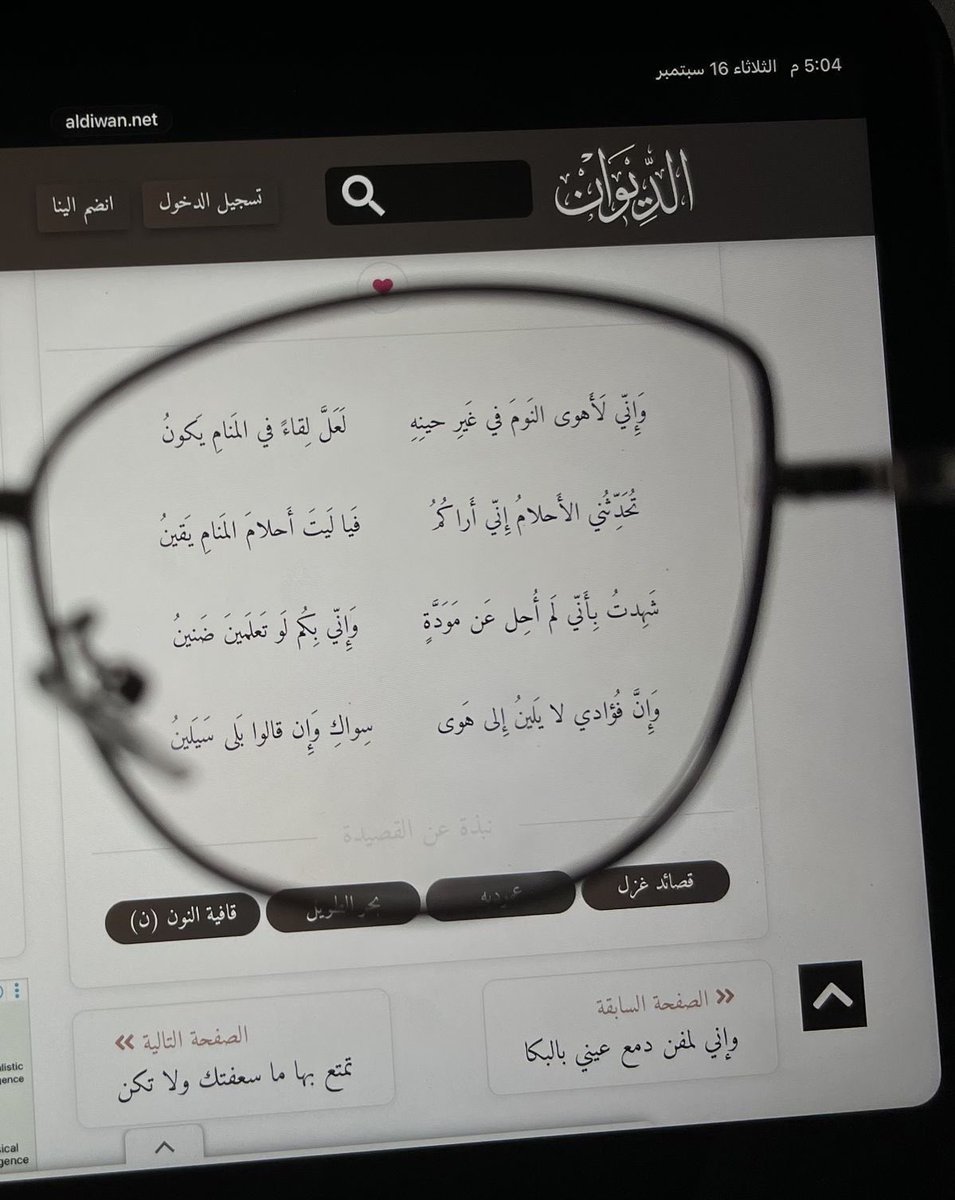 5:04 م الثلاثاء 16 سبتمبر
aldiwan.net
الدِّيوَان
تسجيل الدخول
انضم الينا
وَإِنّي لَأَهوى النَومَ في غَيرِ حينِهِ لَعَلَّ لِقاءً في المَنامِ يَكونُ
تُحَدِّثُني الأَحلامُ إِنّي أَراكُمُ فَيا لَيتَ أَحلامَ المَنامِ يَقينُ
شَهِدتُ بِأَنّي لَم أُحِل عَن مَوَدَّةٍ وَإِنّي بِكُم لَو تَعلَمينَ ضَنينُ
وَإِنَّ فُؤادي لا يَلينُ إِلى هَوى سِواكِ وَإِن قالوا بَلى سَيَلينُ
نبذة عن القصيدة
قصائد غزل
عموديه
بحر الطويل
قافية النون (ن)
الصفحة السابقة
وإني لمفن دمع عيني بالبكا
الصفحة التالية
تمتع بها ما سعفتك ولا تكن